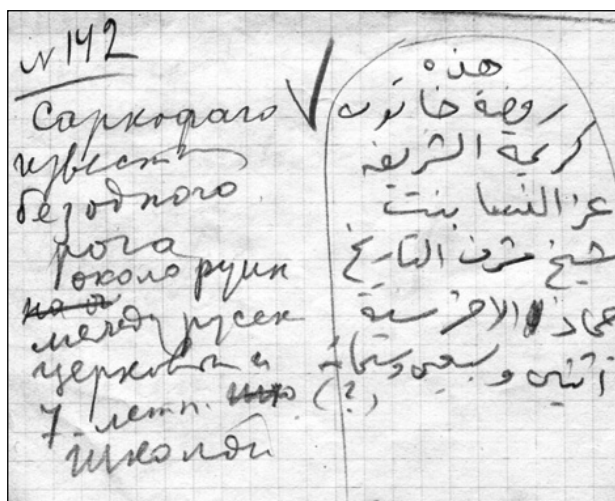 N 142
Саркофаг
известн
безодного
рога
около руин
между русск
церковью и
7 летн.
школой
هذه
روضة خاتون
كريمة الشريفه
عز النسا بنت
شيخ شرف التاريخ
جماد الاخر سنة
اثنين و سبعين وستماية
(?)